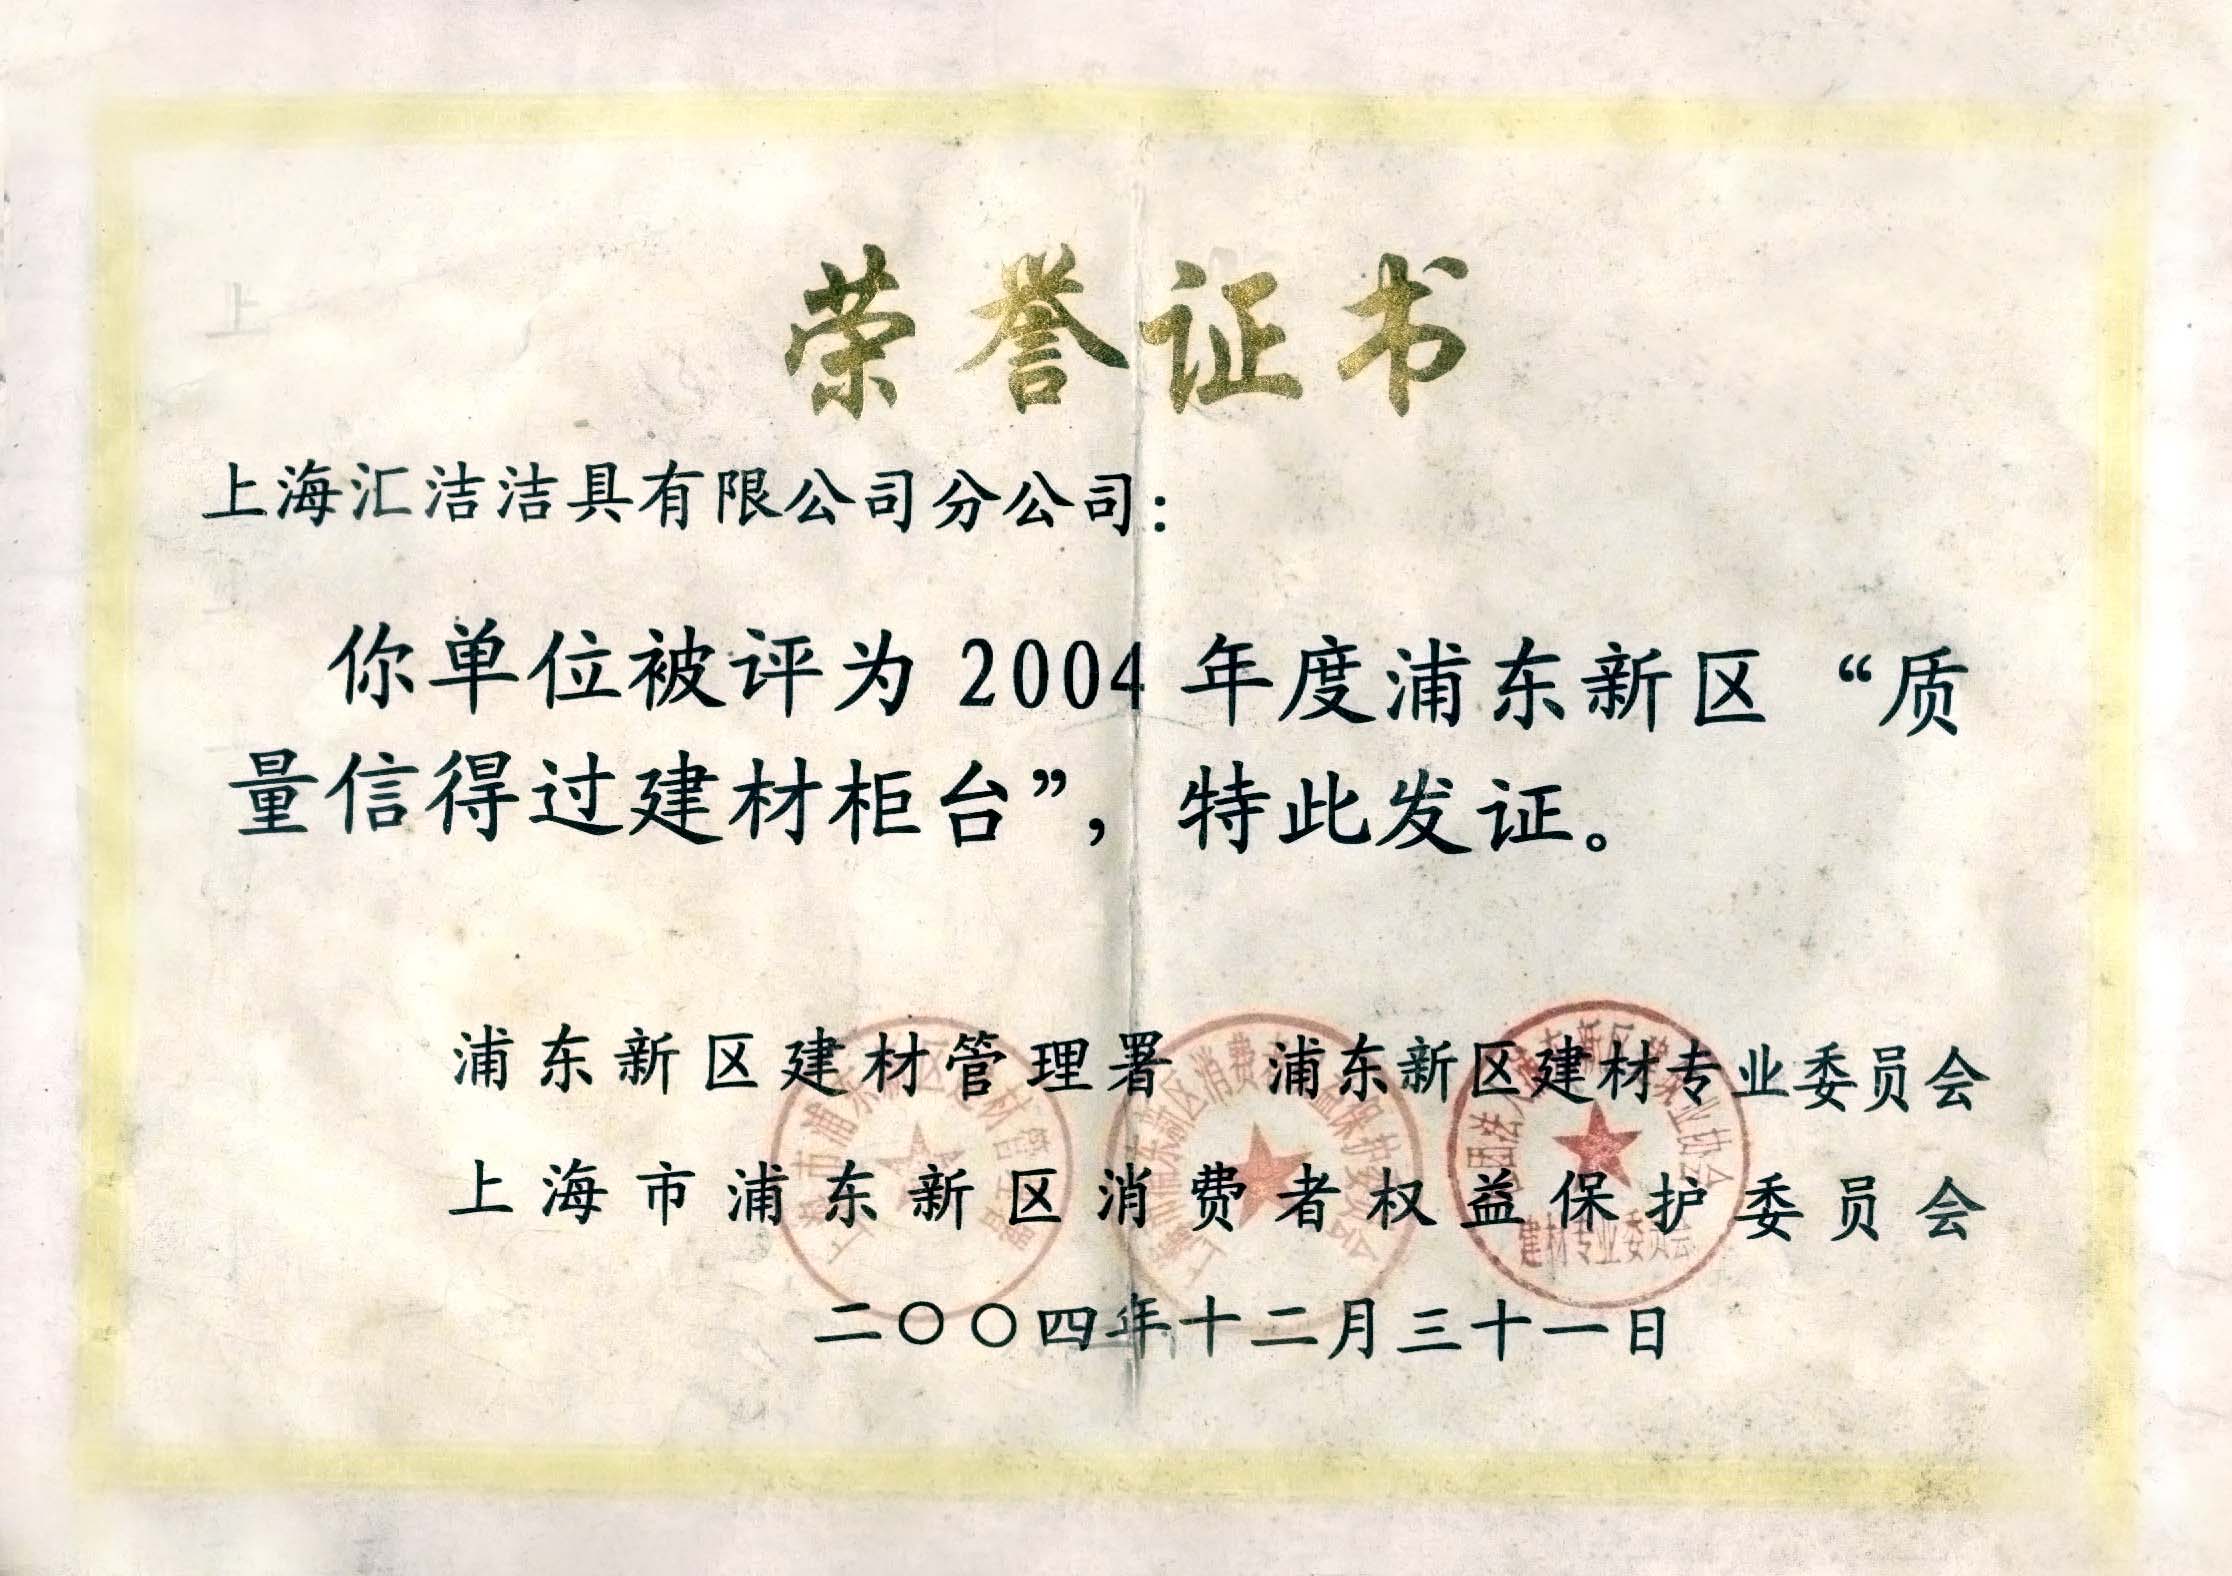 荣誉证书
上海汇洁洁具有限公司分公司：
你单位被评为 2004 年度浦东新区“质
量信得过建材柜台”，特此发证。
浦东新区建材管理署 浦东新区建材专业委员会
上海市浦东新区消费者权益保护委员会
二〇〇四年十二月三十一日
上海市浦东新区建材管理署
建材专业委员会